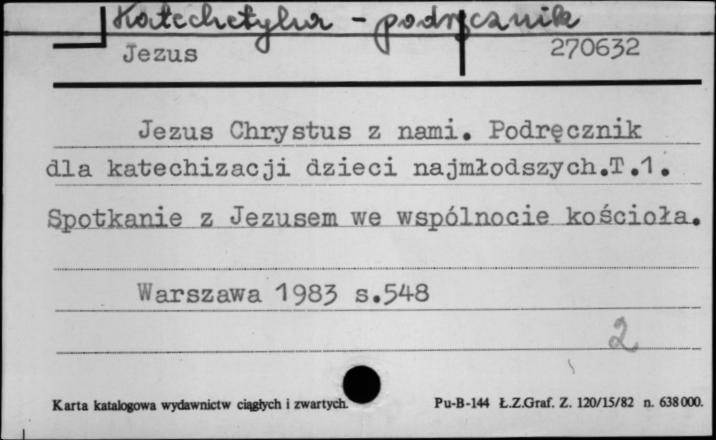 Katechetyka - podręcznik
Jezus 270632
Jezus Chrystus z nami. Podręcznik
dla katechizacji dzieci najmłodszych.T.1.
Spotkanie z Jezusem we wspólnocie kościoła.
Warszawa 1983 s.548
2
Karta katalogowa wydawnictw ciągłych i zwartych. Pu-B-144 Ł.Z.Graf. Z. 120/15/82 n. 638000.